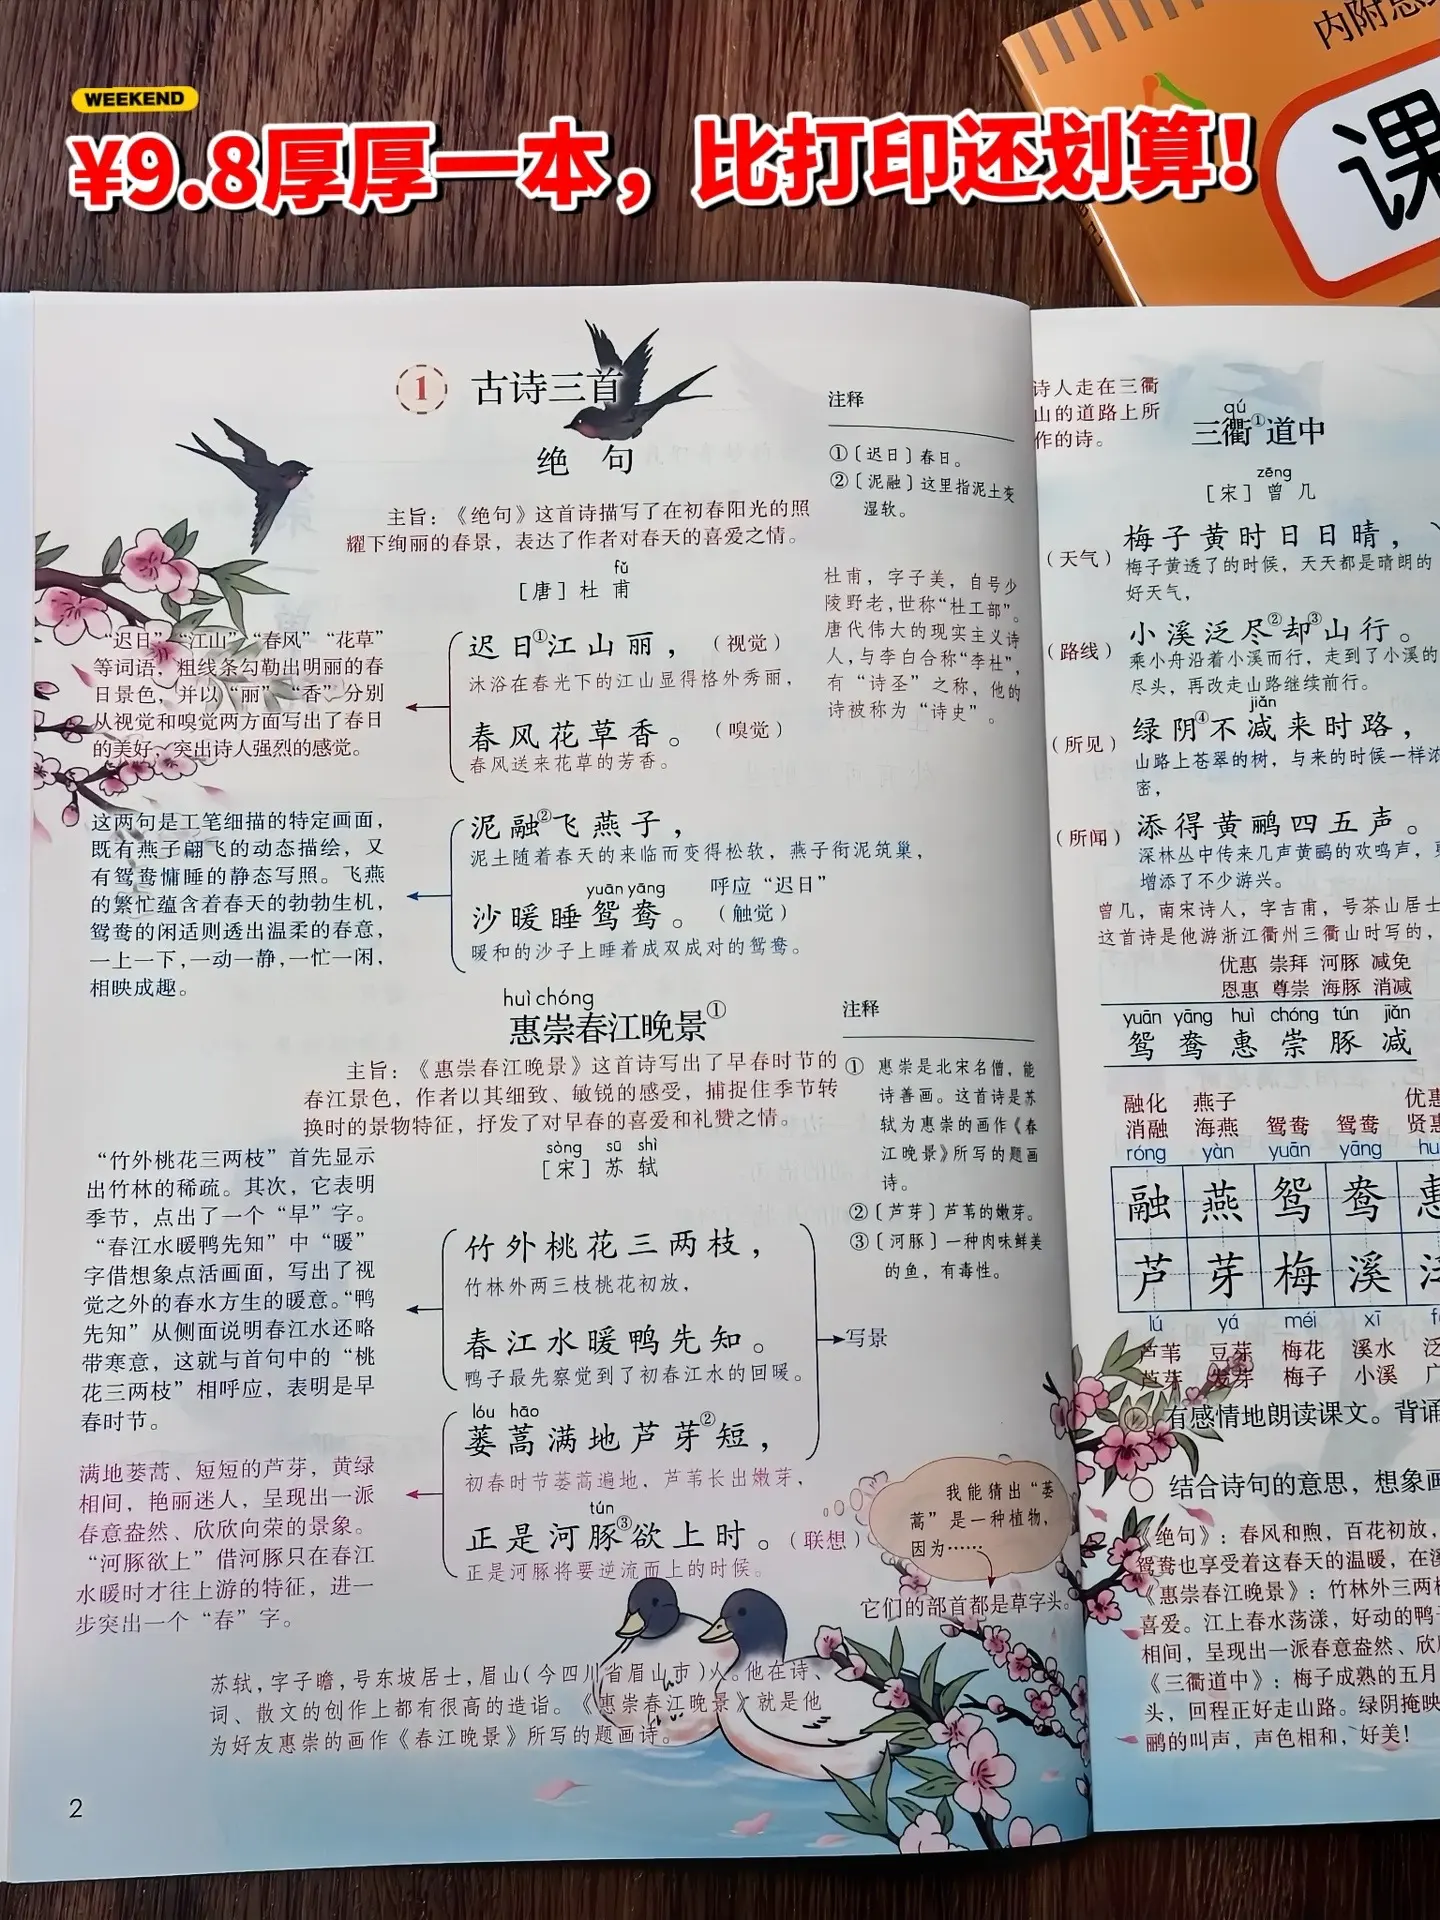 WEEKEND
¥9.8厚厚一本，比打印还划算！
内附
课
1 古诗三首
绝句
主旨：《绝句》这首诗描写了在初春阳光的照
耀下绚丽的春景，表达了作者对春天的喜爱之情。
fǔ
［唐］杜甫
“迟日”“江山”“春风”“花草”
等词语，粗线条勾勒出明丽的春
日景色，并以“丽”“香”分别
从视觉和嗅觉两方面写出了春日
的美好，突出诗人强烈的感觉。
迟日①江山丽，（视觉）
沐浴在春光下的江山显得格外秀丽，
春风花草香。（嗅觉）
春风送来花草的芳香。
这两句是工笔细描的特定画面，
既有燕子翩飞的动态描绘，又
有鸳鸯慵睡的静态写照。飞燕
的繁忙蕴含着春天的勃勃生机，
鸳鸯的闲适则透出温柔的春意，
一上一下，一动一静，一忙一闲，
相映成趣。
泥融②飞燕子，
泥土随着春天的来临而变得松软，燕子衔泥筑巢，
yuān yāng 呼应“迟日”
沙暖睡鸳鸯。（触觉）
暖和的沙子上睡着成双成对的鸳鸯。
注释
①〔迟日〕春日。
②〔泥融〕这里指泥土变
湿软。
杜甫，字子美，自号少
陵野老，世称“杜工部”。
唐代伟大的现实主义诗
人，与李白合称“李杜”，
有“诗圣”之称，他的
诗被称为“诗史”。
huì chóng
惠崇春江晚景①
主旨：《惠崇春江晚景》这首诗写出了早春时节的
春江景色，作者以其细致、敏锐的感受，捕捉住季节转
换时的景物特征，抒发了对早春的喜爱和礼赞之情。
sòng sū shì
［宋］苏轼
“竹外桃花三两枝”首先显示
出竹林的稀疏。其次，它表明
季节，点出了一个“早”字。
“春江水暖鸭先知”中“暖”
字借想象点活画面，写出了视
觉之外的春水方生的暖意。“鸭
先知”从侧面说明春江水还略
带寒意，这就与首句中的“桃
花三两枝”相呼应，表明是早
春时节。
竹外桃花三两枝，
竹林外两三枝桃花初放，
春江水暖鸭先知。
鸭子最先察觉到了初春江水的回暖。
写景
满地蒌蒿、短短的芦芽，黄绿
相间，艳丽迷人，呈现出一派
春意盎然、欣欣向荣的景象。
“河豚欲上”借河豚只在春江
水暖时才往上游的特征，进一
步突出一个“春”字。
lóu hāo
蒌蒿满地芦芽②短，
初春时节蒌蒿遍地，芦苇长出嫩芽，
tún
正是河豚③欲上时。（联想）
正是河豚将要逆流而上的时候。
注释
① 惠崇是北宋名僧，能
诗善画。这首诗是苏
轼为惠崇的画作《春
江晚景》所写的题画
诗。
②〔芦芽〕芦苇的嫩芽。
③〔河豚〕一种肉味鲜美
的鱼，有毒性。
我能猜出“蒌
蒿”是一种植物，
因为……
它们的部首都是草字头。
苏轼，字子瞻，号东坡居士，眉山（今四川省眉山市）人。他在诗、
词、散文的创作上都有很高的造诣。《惠崇春江晚景》就是他
为好友惠崇的画作《春江晚景》所写的题画诗。
2
诗人走在三衢
山的道路上所
作的诗。
qú
三衢①道中
zēng
［宋］曾几
（天气）梅子黄时日日晴，
梅子黄透了的时候，天天都是晴朗的
好天气，
（路线）小溪泛尽②却③山行。
乘小舟沿着小溪而行，走到了小溪的
尽头，再改走山路继续前行。
jiǎn
（所见）绿阴④不减来时路，
山路上苍翠的树，与来的时候一样浓
密，
（所闻）添得黄鹂四五声。
深林丛中传来几声黄鹂的欢鸣声，
增添了不少游兴。
曾几，南宋诗人，字吉甫，号茶山居士
这首诗是他游浙江衢州三衢山时写的，
优惠 崇拜 河豚 减免
恩惠 尊崇 海豚 消减
yuān yāng huì chóng tún jiǎn
鸳鸯惠崇豚减
融化 燕子 优惠
消融 海燕 鸳鸯 鸳鸯 贤惠
róng yàn yuān yāng hu
融燕鸳鸯惠
芦芽梅溪泛
lú yá méi xī f
芦苇 豆芽 梅花 溪水 泛
芦芽 发芽 梅子 小溪 广
有感情地朗读课文。背诵
结合诗句的意思，想象画
《绝句》：春风和煦，百花初放，
鸳鸯也享受着这春天的温暖，在
《惠崇春江晚景》：竹林外三两枝
喜爱。江上春水荡漾，好动的鸭子
相间，呈现出一派春意盎然、欣
《三衢道中》：梅子成熟的五月
头，回程正好走山路。绿阴掩映
鹂的叫声，声色相和，好美！